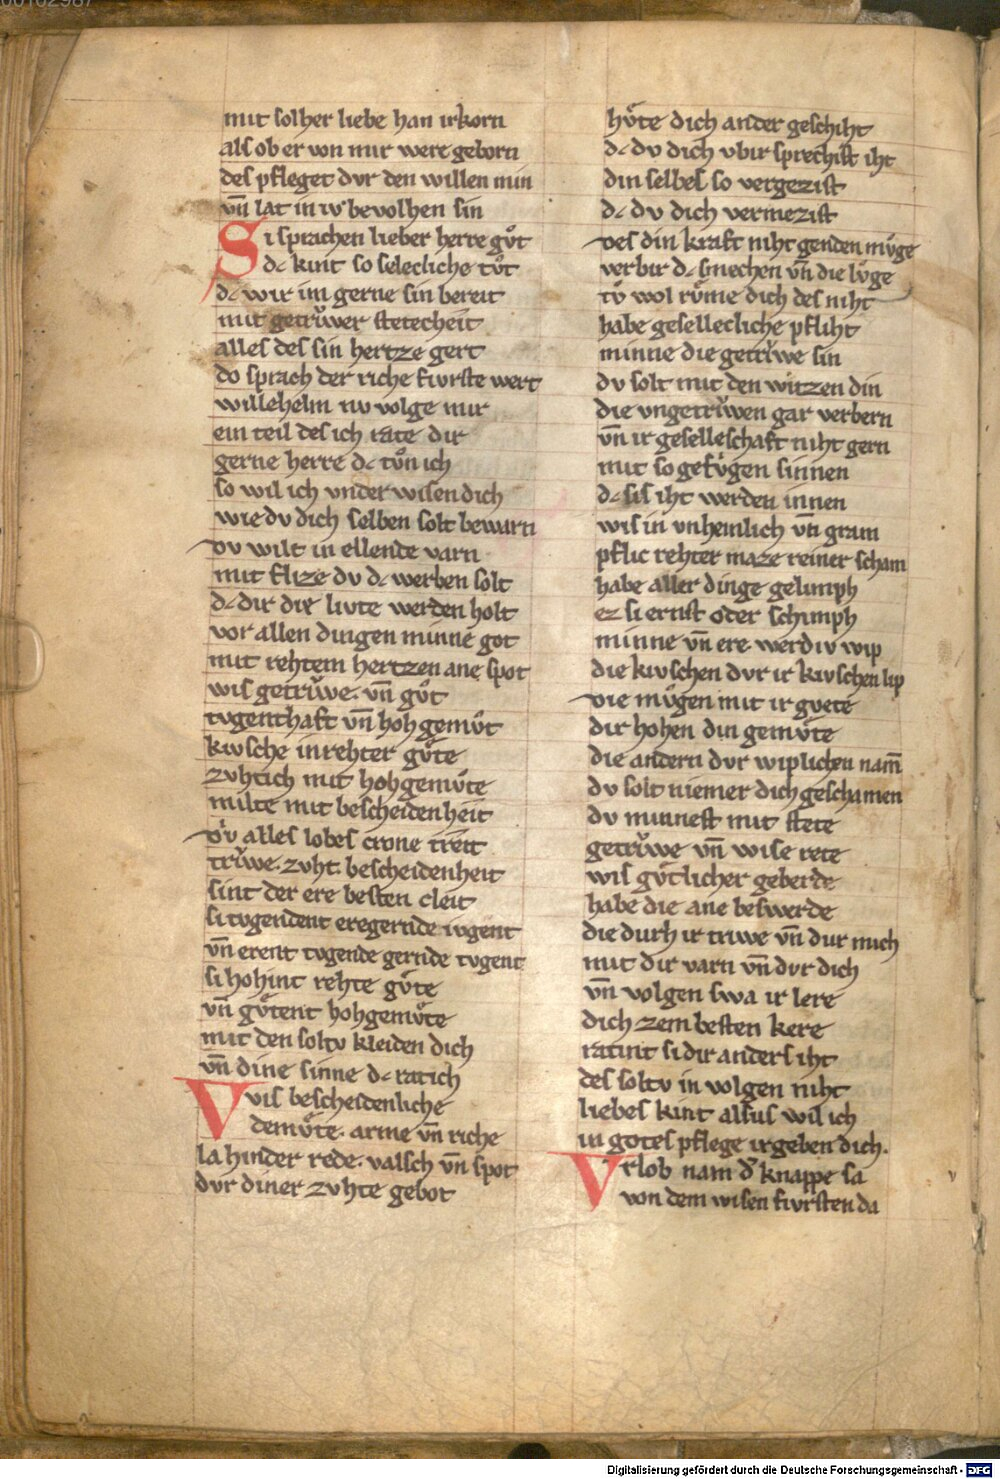 mit solher liebe han irkorn
als ob er von mir were geborn
des pfleget dvr den willen min
vn̄ lat in iv bevolhen sin
Si sprachen lieber herre gv̊t
dc kint so selecliche tv̊t
dc wir im gerne sin bereit
mit getrv̎wer stetecheit
alles des sin hertze gert
do sprach der riche fivrste wert
willehelm nv volge mir
ein teil des ich rate dir
gerne herre dc tv̊n ich
so wil ich vnderwisen dich
wie dv dich selben solt bewarn
dv wilt in ellende varn
mit flize dv dc werben solt
dc dir die livte werden holt
vor allen dingen minne got
mit rehtem hertzen ane spot
wis getrv̎we. vn̄ gv̊t
tvgenthaft vn̄ hoh gemv̊t
kivsche in rehter gv̊te
zvhtich mit hohgemv̊te
milte mit bescheidenheit
div alles lobes crone treit
trv̎we. zvht. bescheidenheit
sint der ere besten cleit
si tvgendent eregernde ivgent
vn̄ erent tvgende gernde tvgent
si hohint rehte gv̊te
vn̄ gv̊tent hohgemv̊te
mit den soltv kleiden dich
vn̄ dine sinne dc rat ich
Wis bescheidenliche
demv̊te. arme vn̄ riche
la hinder rede. valsch vn̄ spot
dvr diner zvhte gebot
hv̊te dich ander geschiht
dc dv dich vbir sprechist iht
din selbes so vergezist
dc dv dich vermezist
des din kraft niht genden mv̊ge
verbir dc smechen vn̄ die lv̊ge
tv̊ wol rv̊me dich des niht
habe gesellecliche pfliht
minne die getrv̎we sin
dv solt mit den witzen din
die vngetrv̎wen gar verbern
vn̄ ir geselleschaft niht gern
mit so gefv̊gen sinnen
dc sis iht werden innen
wis in vnheinlich vn̄ gram
pflic rehter maze reiner scham
habe aller dinge gelimph
ez si ernst oder schimph
minne vn̄ ere werdiv wip
die kivschen dvr ir kivschen lip
die mv̊gen mit ir gvete
dir hohen din gemv̊te
die andern dvr wiplichen nam̄
dv solt niemer dich geschamen
dv minnest mit stete
getrv̎we vn̄ wise rete
wis gv̊tlicher geberde
habe die ane beswerde
die durh ir triwe vn̄ dur mich
mit dir varn vn̄ dvr dich
vn̄ volgen swa ir lere
dich zem besten kere
ratint si dir anders iht
des soltv in volgen niht
liebes kint alsus wil ich
in gotes pflege irgeben dich.
Vrlob nam d' knappe sa
von dem wisen fivrsten da
Digitalisierung gefördert durch die Deutsche Forschungsgemeinschaft - DFG